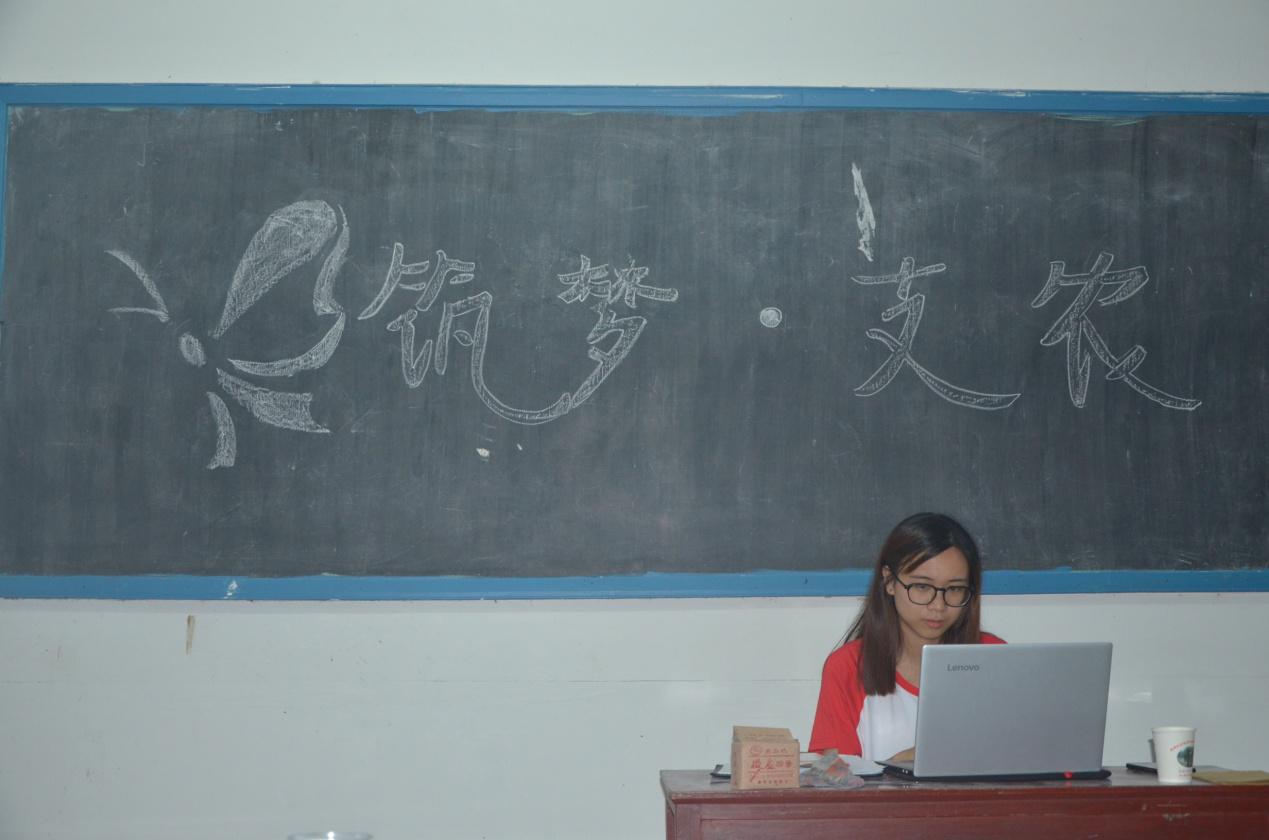 筑梦·支农
Lenovo